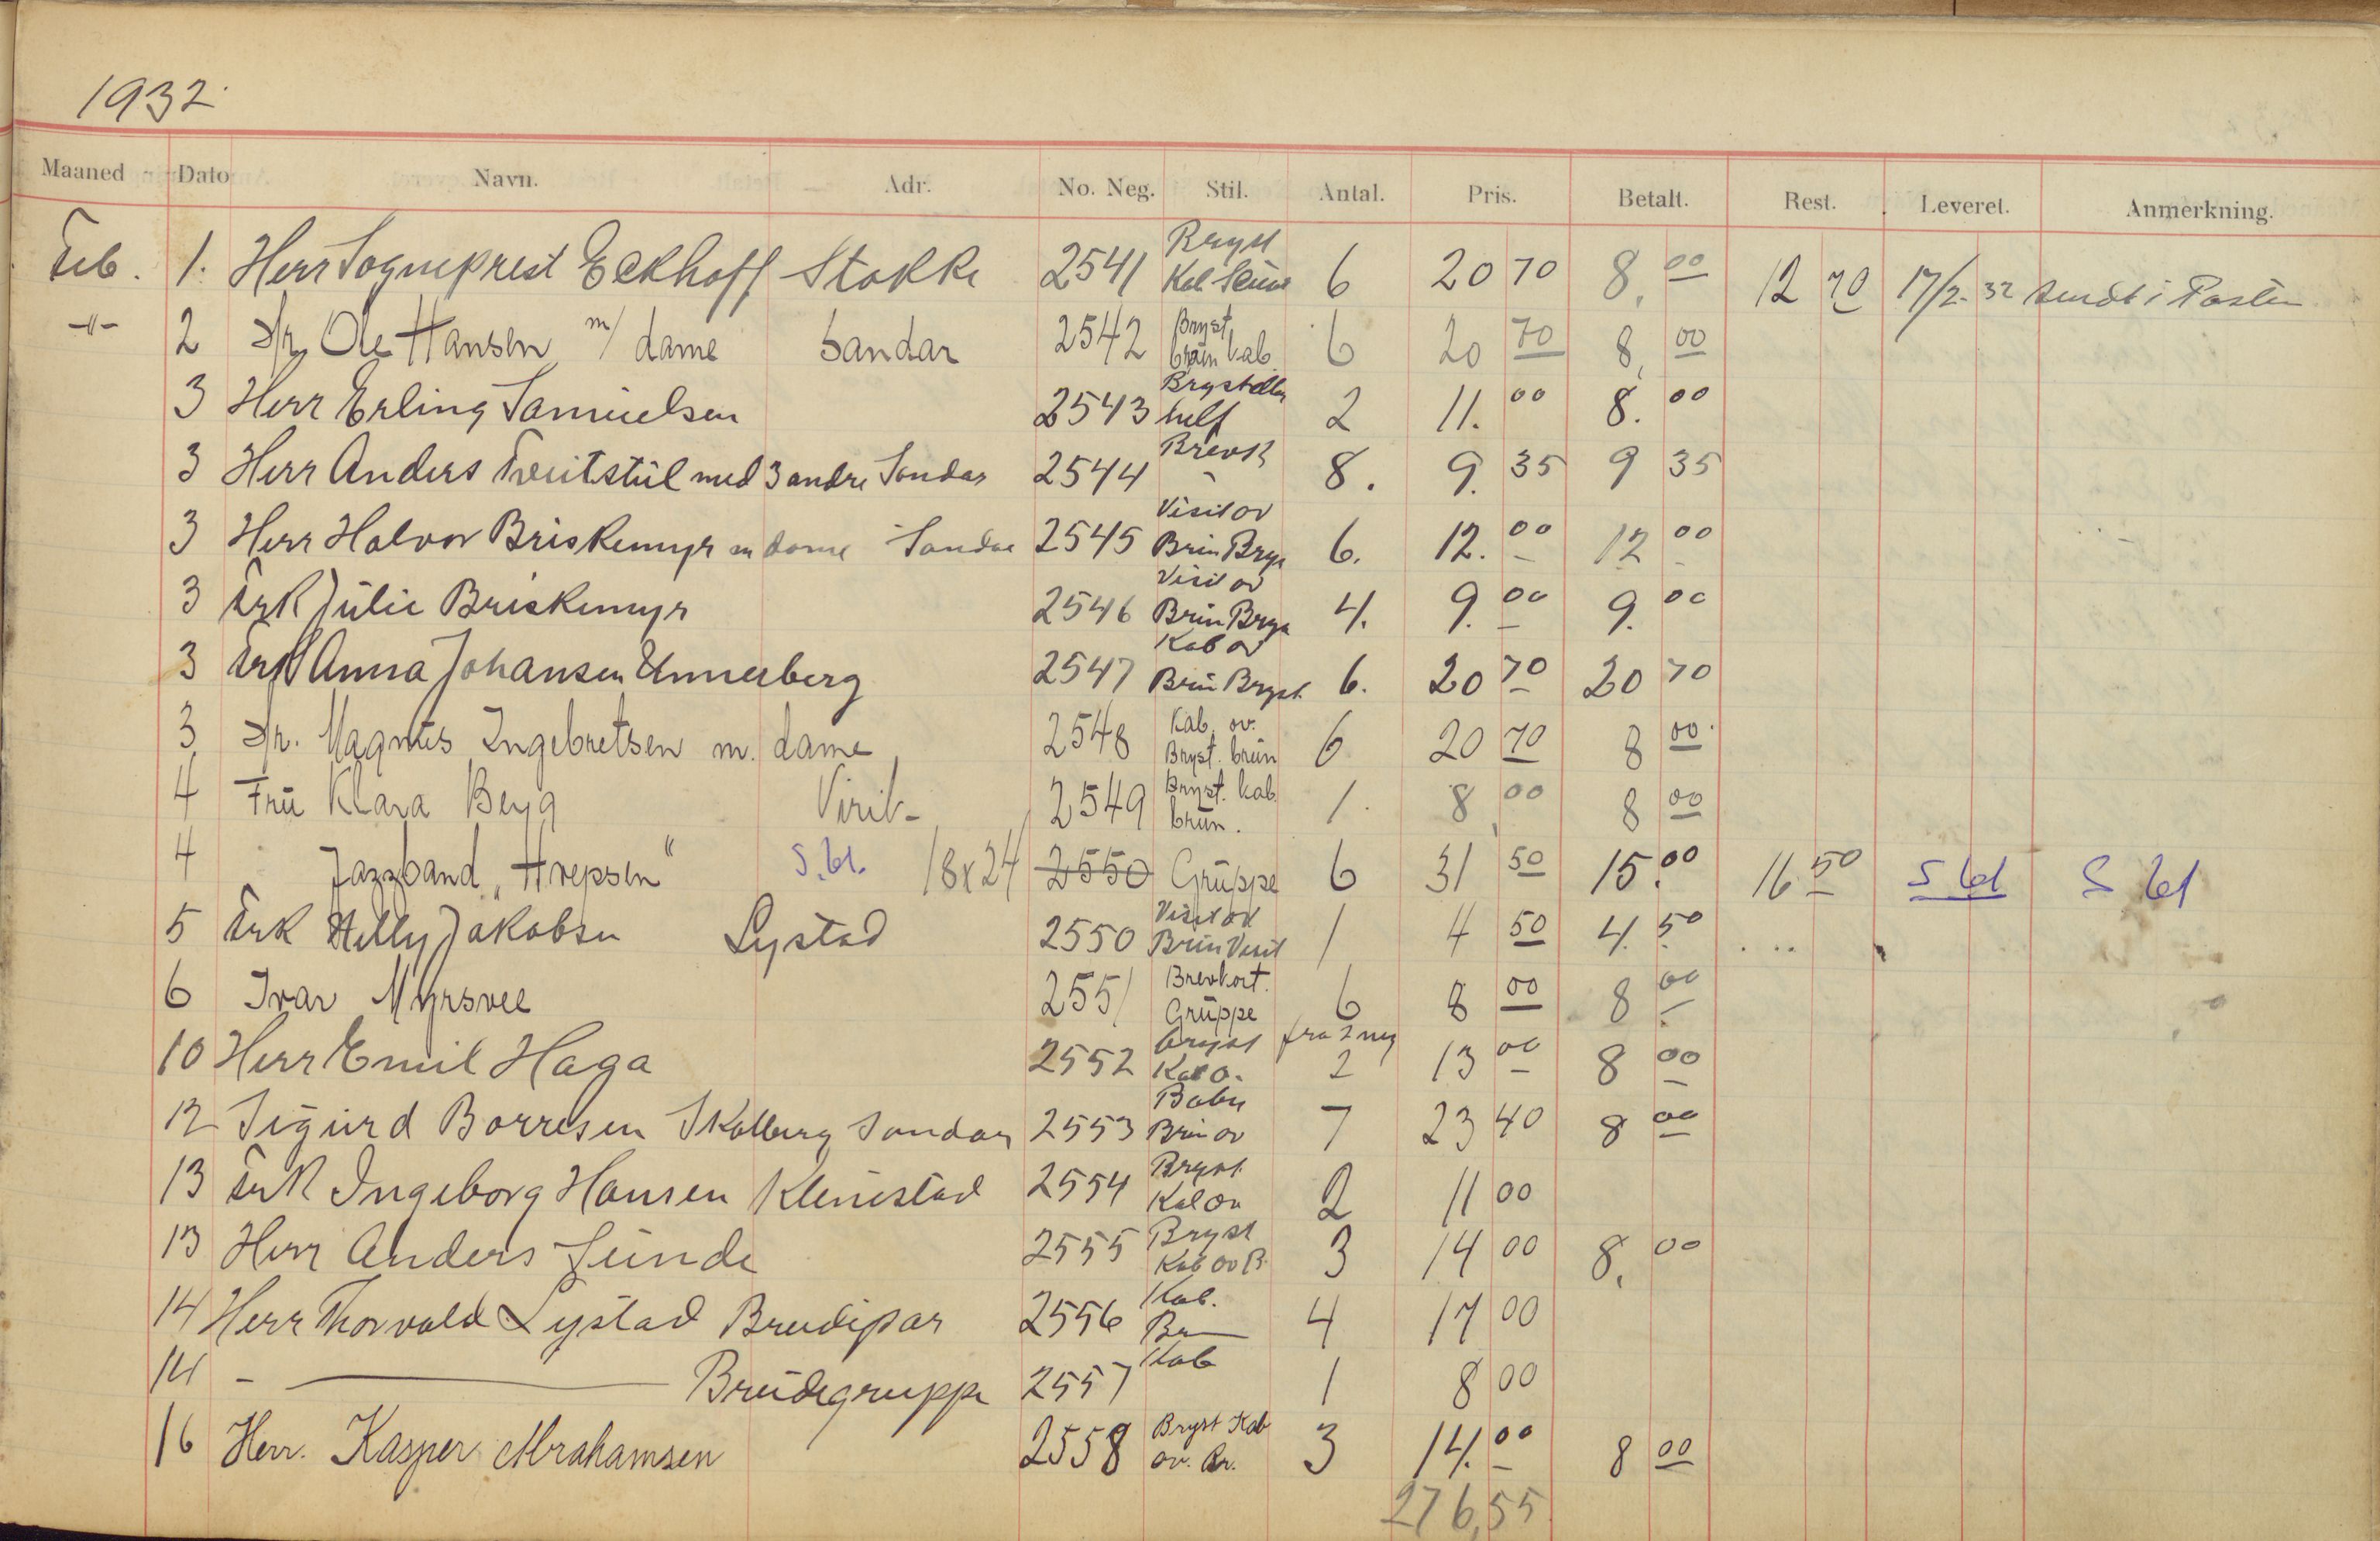 1932
Maaned Dato Navn. Adr. No. Neg. Stil. Antal. Pris. Betalt. Rest. Leveret. Anmerkning.
Feb. 1. Herr Sogneprest Eckhoff Stokke 2541 Bryst Kab. 6 20 70 8,00 12 70 17/2. 32 sendt i Posten
-"- 2 Hr. Ole Hansen m/ dame Sandar 2542 Bryst brün kab. 6 20 70 8,00
3 Herr Erling Samüelsen 2543 Bryst helf 2 11.00 8.00
3 Herr Anders Tveitstül med 3 andre Sandar 2544 Brevk 8. 9.35 9 35
3 Herr Halvor Briskemyr m dame Sandar 2545 Visit ov Brün Brys 6. 12.00 12 00
3 Frk Jülie Briskemyr 2546 Visit ov Brün Brys 4. 9.00 9.00
3 Frk Anna Johansen Unneberg 2547 Kab ov Brün Bryst. 6. 20 70 20 70
3 Hr. Magnüs Ingebretsen m. dame 2548 Kab. ov. Bryst. brün 6 20 70 8 00
4 Frü Klara Berg Virik 2549 Bryst. kab. brün. 1. 8,00 8 00
4 Jazzband „Hrepsen" S.bl. 18x24 2550 Grüppe 6 31 50 15.00 16 50 S bl S bl
5 Frk Helly Jakobsen Lystad 2550 Visit ov Brün Visit 1 4 50 4.50
6 Ivar Myrsvee 2551 Brevkort. Grüppe 6 8 00 8 00
10 Herr Emil Haga 2552 bryst Kab o. fra 2 neg 2 13 00 8 00
12 Sigürd Borresen Skolberg Sandar 2553 Baby Brün ov 7 23 40 8 00
13 Frk Ingeborg Hansen Klinestad 2554 Bryst. Kab ov 2 11 00
13 Herr Anders Sünde 2555 Bryst Kab ov B. 3 14 00 8,00
14 Herr Thorvald Lystad Brudepar 2556 Kab. Br 4 17 00
14 - Brüdegruppe 2557 Kab 1 8 00
16 Herr. Kasper Abrahamsen 2558 Bryst Kab ov. Br. 3 14.00 8 00
276,55